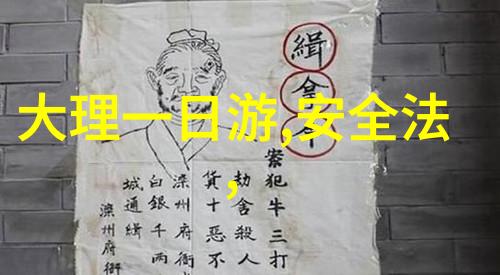 大理一日游,安全法
,
緝拿令
案犯牛三打
劫舍殺人
貨十惡不
滦州府衙
白銀千兩
城通緝
滦州府衙